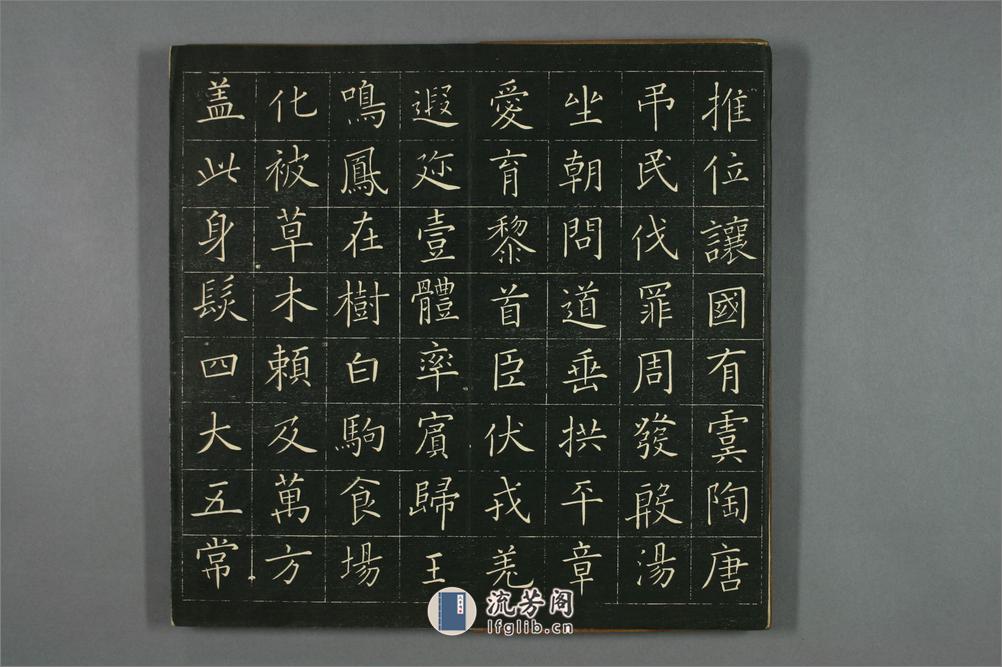 推位讓國有虞陶唐
弔民伐罪周發殷湯
坐朝問道垂拱平章
愛育黎首臣伏戎羌
遐迩壹體率賓歸王
鳴鳳在樹白駒食場
化被草木賴及萬方
盖此身髮四大五常
流芳阁
lfglib.cn